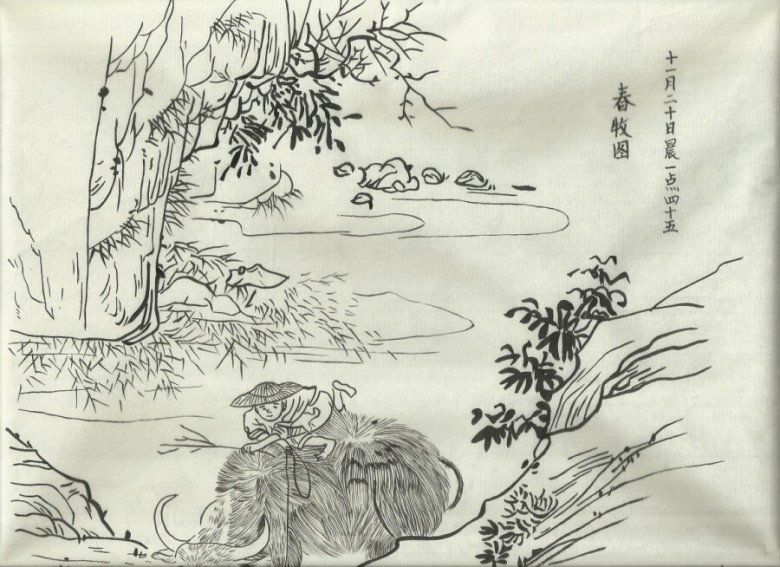 十一月二十日晨一点四十五
春牧图